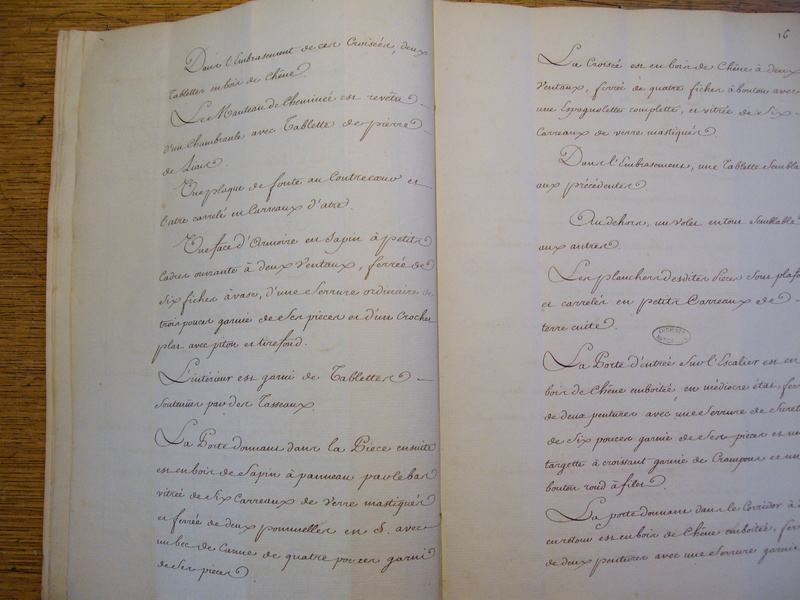 Dans l'Embrasement de ces Croisées, deux
Tablettes en bois de Chêne.
Le Manteau de Cheminée est revêtu
d'un Chambranle avec Tablette de pierre
de Liais.
Une plaque de fonte au Contrecœur et
l'atre carrelé en Carreaux d'atre.
Une face d'Armoire en Sapin à petits
Cadres ouvrante à deux Ventaux, ferrée de
Six fiches à vase, d'une Serrure ordinaire de
trois pouces garnie de Ses pieces et d'un Crochet
plat avec piton et tirefond.
L'intérieur est garni de Tablettes
Soutenües par des Tasseaux.
La Porte donnant dans la Pièce ensuite
est en bois de Sapin à panneau par le bas
vitrée de Six Carreaux de Verre mastiqués
et ferrée de deux pommelles en S. avec
un bec de Canne de quatre pouces garni
de Ses pieces
16
La Croisée est en bois de Chêne à deux
Ventaux, ferrée de quatre fiches à bouton avec
une Espagnolette complette, et vitrée de Six
Carreaux de verre mastiqués
Dans l'Embrasement, une Tablette Sembla
aux précédentes
Au dehors, un Volet en tout Semblable
aux autres
Les planchers desdites Pieces Sont plafo
et carrelés en petits Carreaux de
terre cuite.
La Porte d'entrée Sur l'Escalier est en
bois de Chêne emboitée, en médiocre état, fer
de deux pentures avec une Serrure de Suret
de Six pouces garnie de Ses pieces et un
targette à croissant garnie de Crampons et un
bouton rond à filets.
La porte donnant dans le Corridor à
en retour est en bois de Chêne emboitée, fer
de deux pentures avec une Serrure garnie